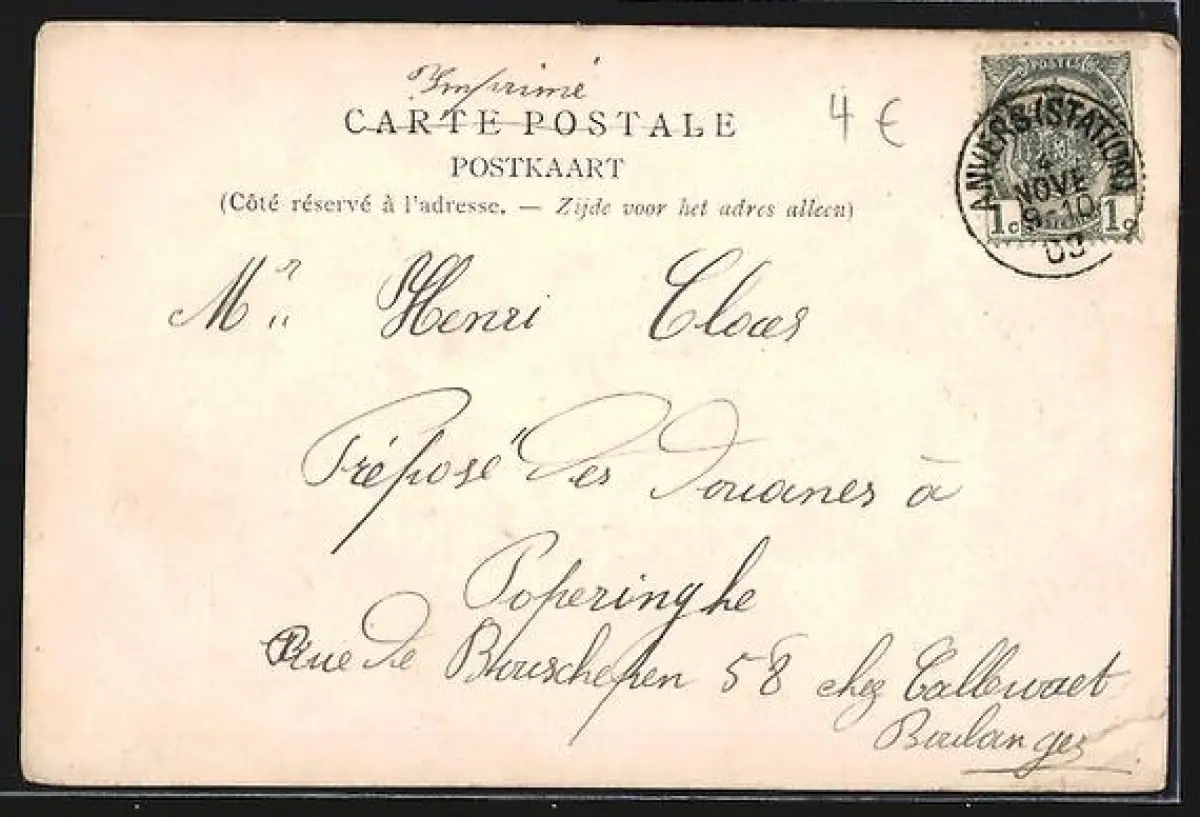 Imprimé
CARTE POSTALE
POSTKAART
(Côté réservé à l'adresse. — Zijde voor het adres alleen)
4 €
POSTES
ANVERS (STATION)
4
NOVE
9-10
03
1c 1c
Mr Henri Cloes
Préposé des Douanes à
Poperinghe
Rue de Bouschepen 58 chez Callewaet
Boulanger